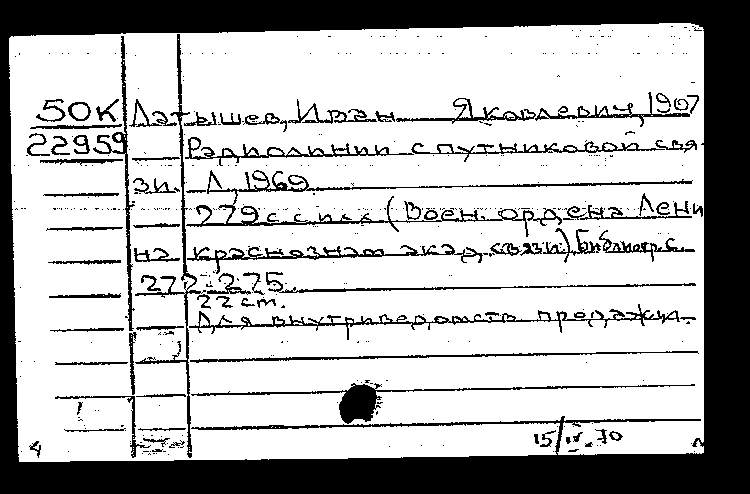 50К Латышев, Иван Яковлевич, 1907
22959 Радиолинии спутниковой свя-
зи. Л., 1969.
279 с с илл (Воен. ордена Лени
на краснознам акад. связи) Библиогр. с.
272-275.
22 см.
Для внутриведомств продажи.
15/IV.70
4